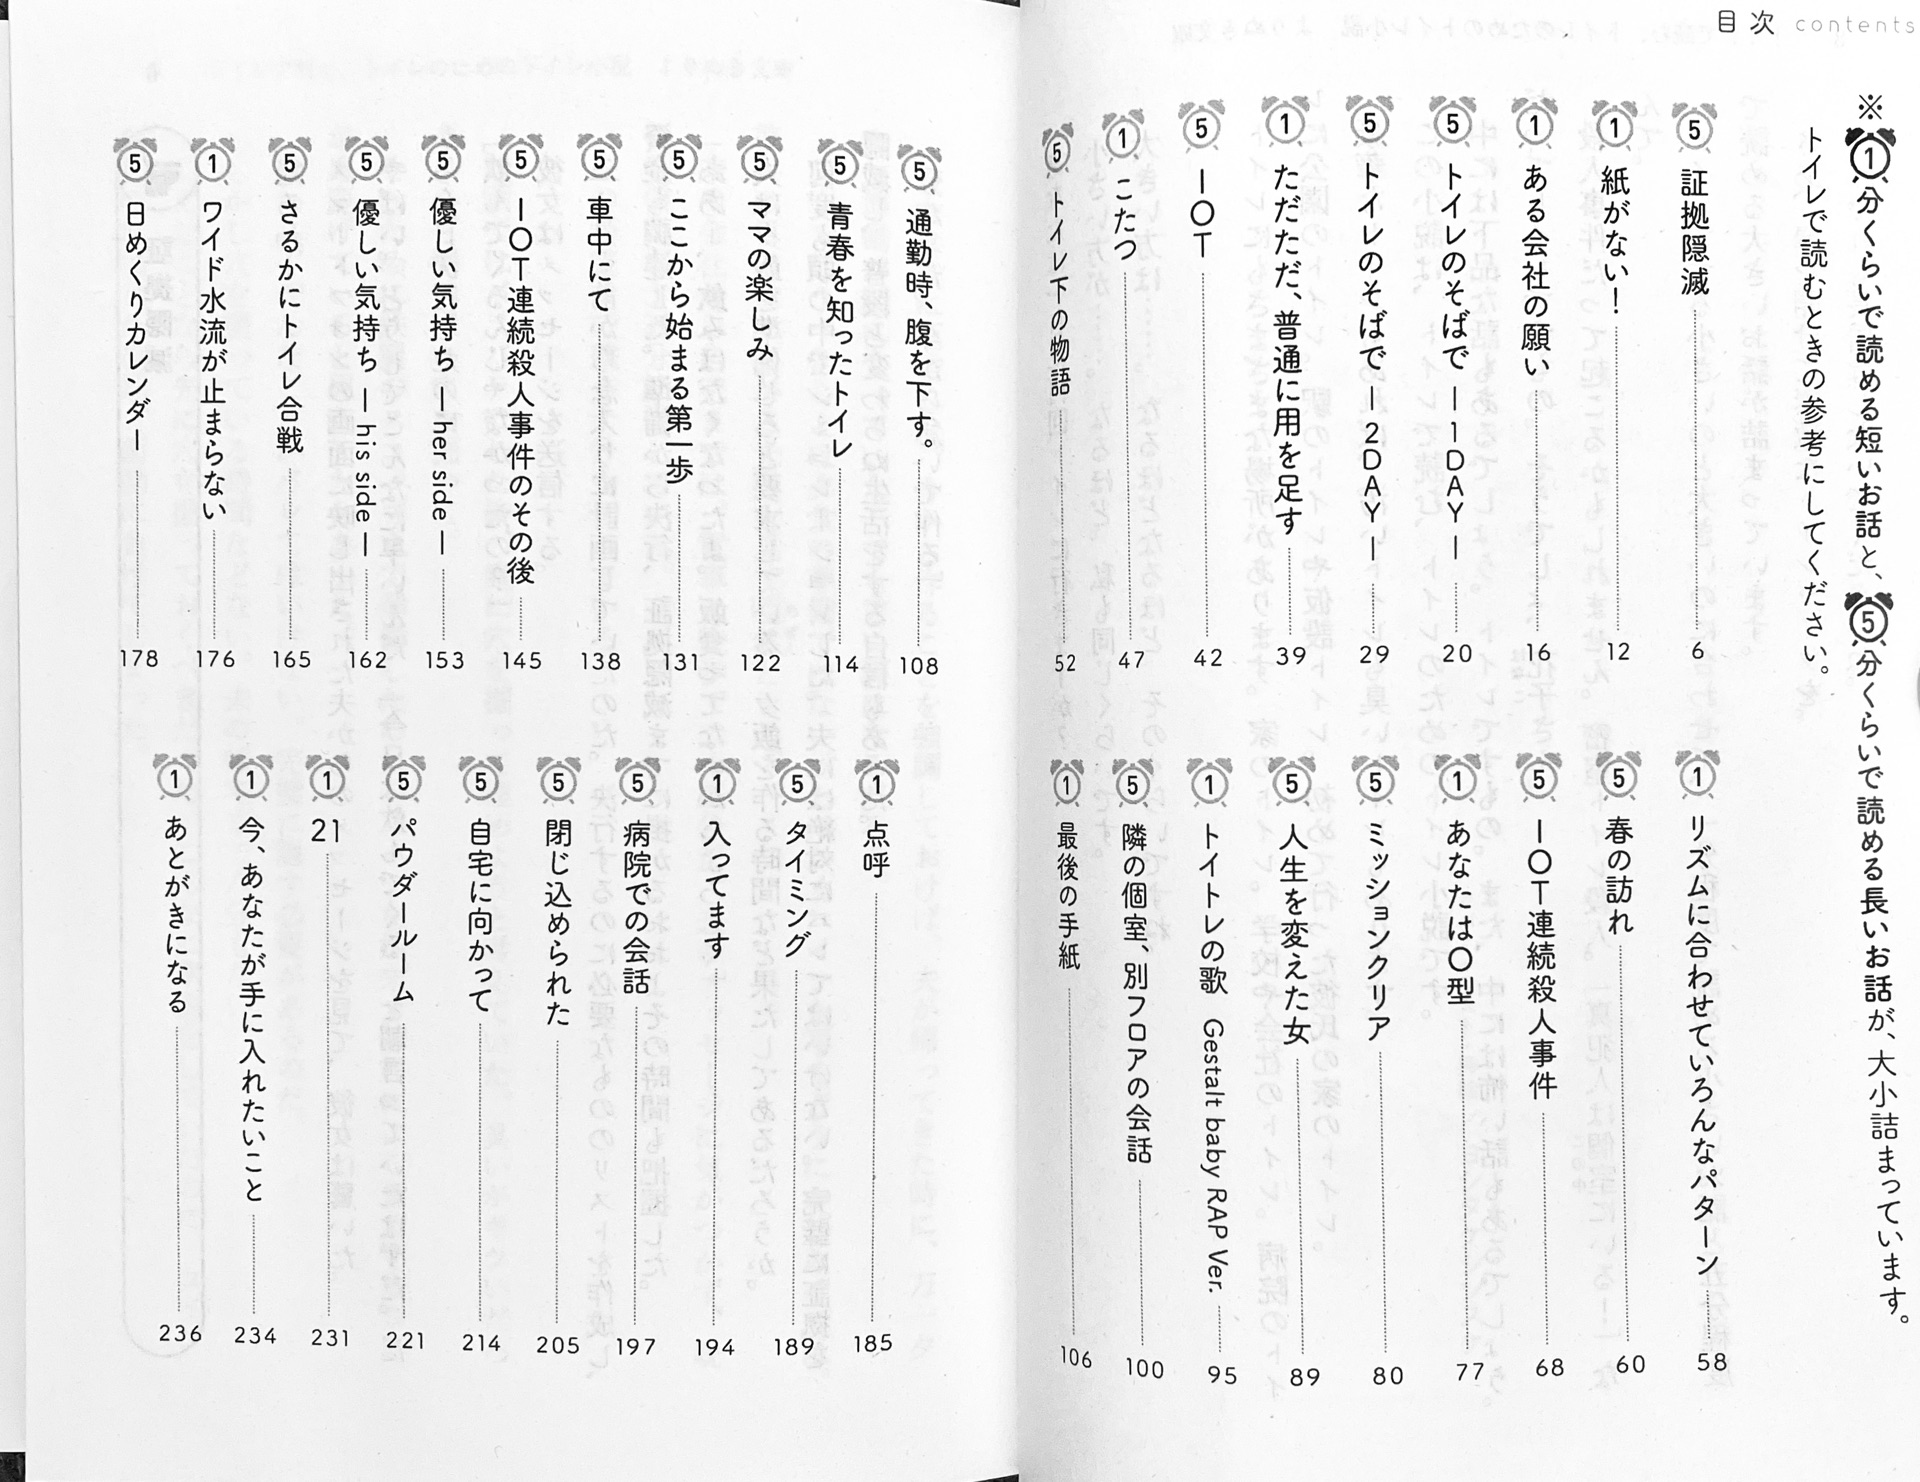 目次 contents
※①分くらいで読める短いお話と、⑤分くらいで読める長いお話が、大小詰まっています。
トイレで読むときの参考にしてください。
⑤ 証拠隠滅 6
① 紙がない! 12
① ある会社の願い 16
⑤ トイレのそばで ―1DAY― 20
⑤ トイレのそばで ―2DAY― 29
① ただただ、普通に用を足す 39
⑤ IOT 42
① こたつ 47
⑤ トイレ下の物語 52
① リズムに合わせていろんなパターン 58
⑤ 春の訪れ 60
⑤ IOT連続殺人事件 68
① あなたは〇型 77
⑤ ミッションクリア 80
⑤ 人生を変えた女 89
① トイトレの歌 Gestalt baby RAP Ver. 95
⑤ 隣の個室、別フロアの会話 100
① 最後の手紙 106
⑤ 通勤時、腹を下す。 108
⑤ 青春を知ったトイレ 114
⑤ ママの楽しみ 122
⑤ ここから始まる第一歩 131
⑤ 車中にて 138
⑤ IOT連続殺人事件のその後 145
⑤ 優しい気持ち ―her side― 153
⑤ 優しい気持ち ―his side― 162
⑤ さるかにトイレ合戦 165
① ワイド水流が止まらない 176
⑤ 日めくりカレンダー 178
① 点呼 185
⑤ タイミング 189
① 入ってます 194
⑤ 病院での会話 197
⑤ 閉じ込められた 205
⑤ 自宅に向かって 214
⑤ パウダールーム 221
① 21 231
① 今、あなたが手に入れたいこと 234
① あとがきになる 236